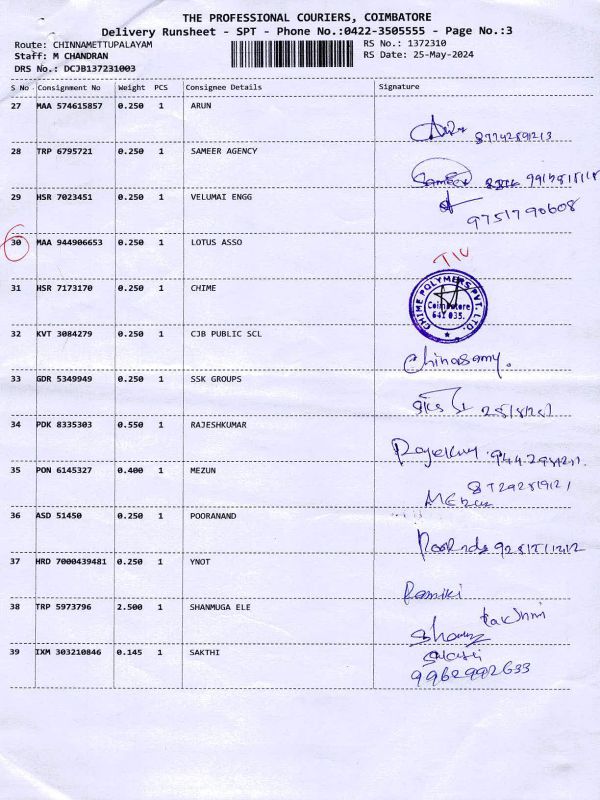 THE PROFESSIONAL COURIERS, COIMBATORE
Delivery Runsheet - SPT - Phone No.:0422-3505555 - Page No.:3
Route: CHINNAMETTUPALAYAM RS No.: 1372310
Staff: M CHANDRAN RS Date: 25-May-2024
DRS No.: DCJB137231003
S No Consignment No Weight PCS Consignee Details Signature
27 MAA 574615857 0.250 1 ARUN
28 TRP 6795721 0.250 1 SAMEER AGENCY
Sameer
29 HSR 7023451 0.250 1 VELUMAI ENGG
9751790608
30 MAA 944906653 0.250 1 LOTUS ASSO
31 HSR 7173170 0.250 1 CHIME
CHIME POLYMERS PVT. LTD.
Coimbatore
641 035.
32 KVT 3084279 0.250 1 CJB PUBLIC SCL
Chinasamy.
33 GDR 5349949 0.250 1 SSK GROUPS
34 PDK 8335303 0.550 1 RAJESHKUMAR
35 PON 6145327 0.400 1 MEZUN
36 ASD 51450 0.250 1 POORANAND
37 HRD 7000439481 0.250 1 YNOT
38 TRP 5973796 2.500 1 SHANMUGA ELE
39 IXM 303210846 0.145 1 SAKTHI
9962992633